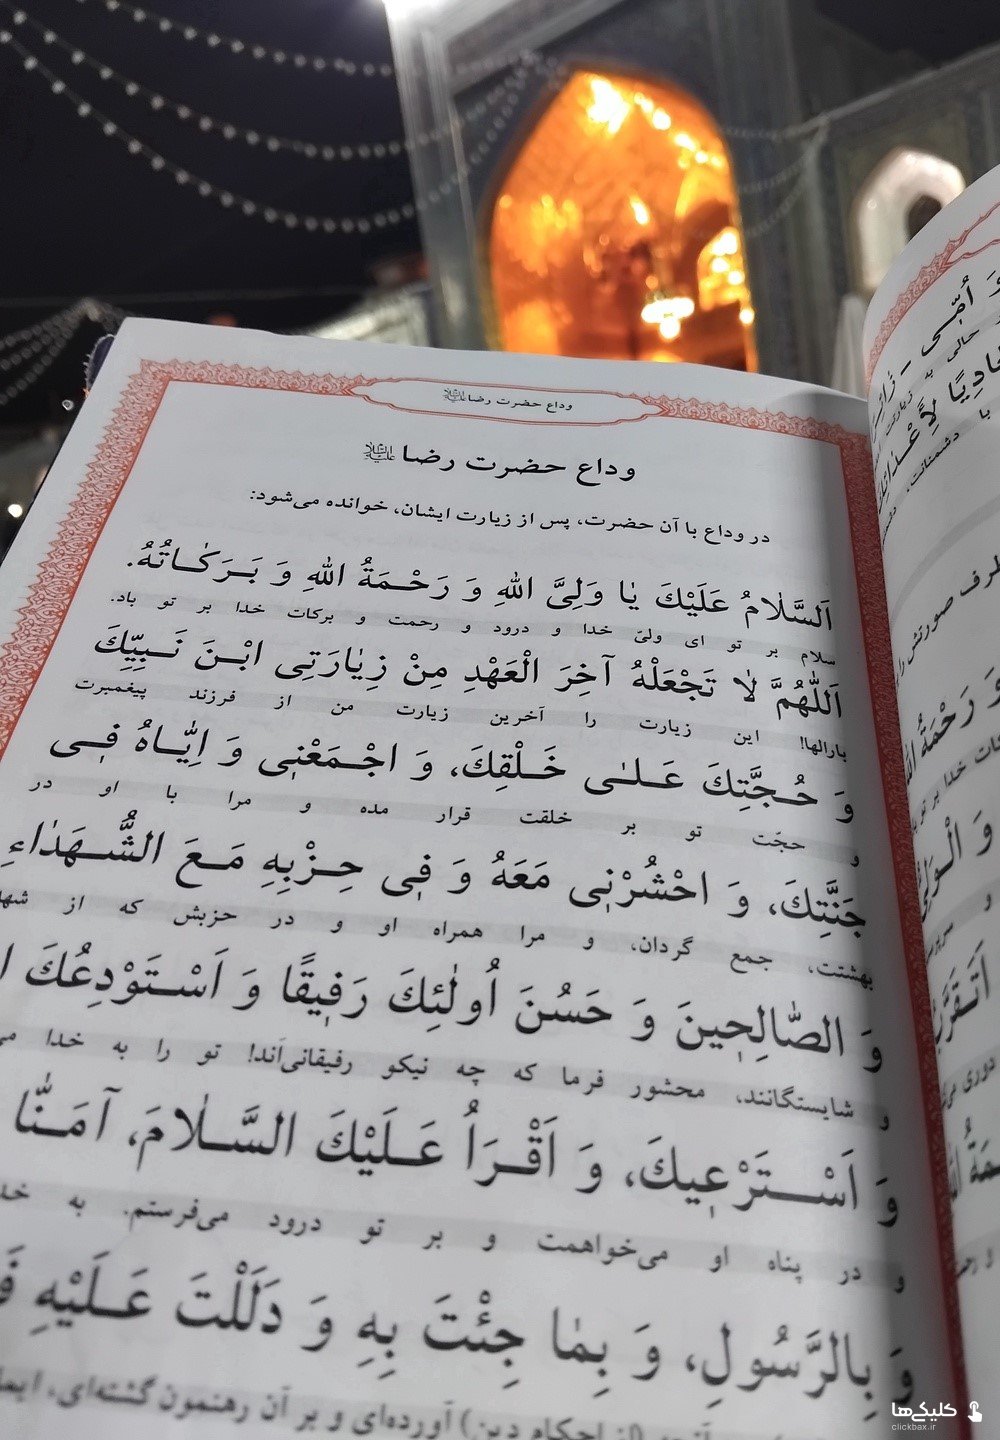 وداع حضرت رضا
وداع حضرت رضا
در وداع با آن حضرت، پس از زیارت ایشان، خوانده می‌شود:
اَلسَّلٰامُ عَلَیْكَ یٰا وَلِیَّ اللهِ وَ رَحْمَةُ اللهِ وَ بَرَكٰاتُهُ.
سلام بر تو ای ولیّ خدا و درود و رحمت و برکات خدا بر تو باد.
اَللّٰهُمَّ لٰا تَجْعَلْهُ آخِرَ الْعَهْدِ مِنْ زِیٰارَتِی ابْنَ نَبِیِّكَ
بارالها! این زیارت را آخرین زیارت من از فرزند پیغمبرت
وَ حُجَّتِكَ عَلـٰی خَلْقِكَ، وَ اجْمَعْنِی وَ اِیّٰاهُ فِی
و حجّت تو بر خلقت قرار مده و مرا با او در
جَنَّتِكَ، وَ احْشُرْنِی مَعَهُ وَ فِی حِزْبِهِ مَعَ الشُّهَدٰاءِ
بهشتت، جمع گردان، و مرا همراه او و در حزبش که از
وَ الصّٰالِحِینَ وَ حَسُنَ اُولٰئِكَ رَفِیقًا وَ اَسْتَوْدِعُكَ
و شایستگانند، محشور فرما که چه نیکو رفیقانی‌اند! تو را به خدا
وَ اَسْتَرْعِیكَ، وَ اَقْرَاُ عَلَیْكَ السَّلٰامَ، آمَنّٰا
و در پناه او می‌خواهمت و بر تو درود می‌فرستم. به
وَ بِالرَّسُولِ، وَ بِمٰا جِئْتَ بِهِ وَ دَلَلْتَ عَلَیْهِ
(از احکام دین) آورده‌ای و بر آن رهنمون گشته‌ای،
وَ اُمِّی
حالی به زیارت
دشمنانت،
طرف صورتش را
وَ رَحْمَةُ
خدا بر تو
دوری
کلیکی‌ها
clickbax.ir